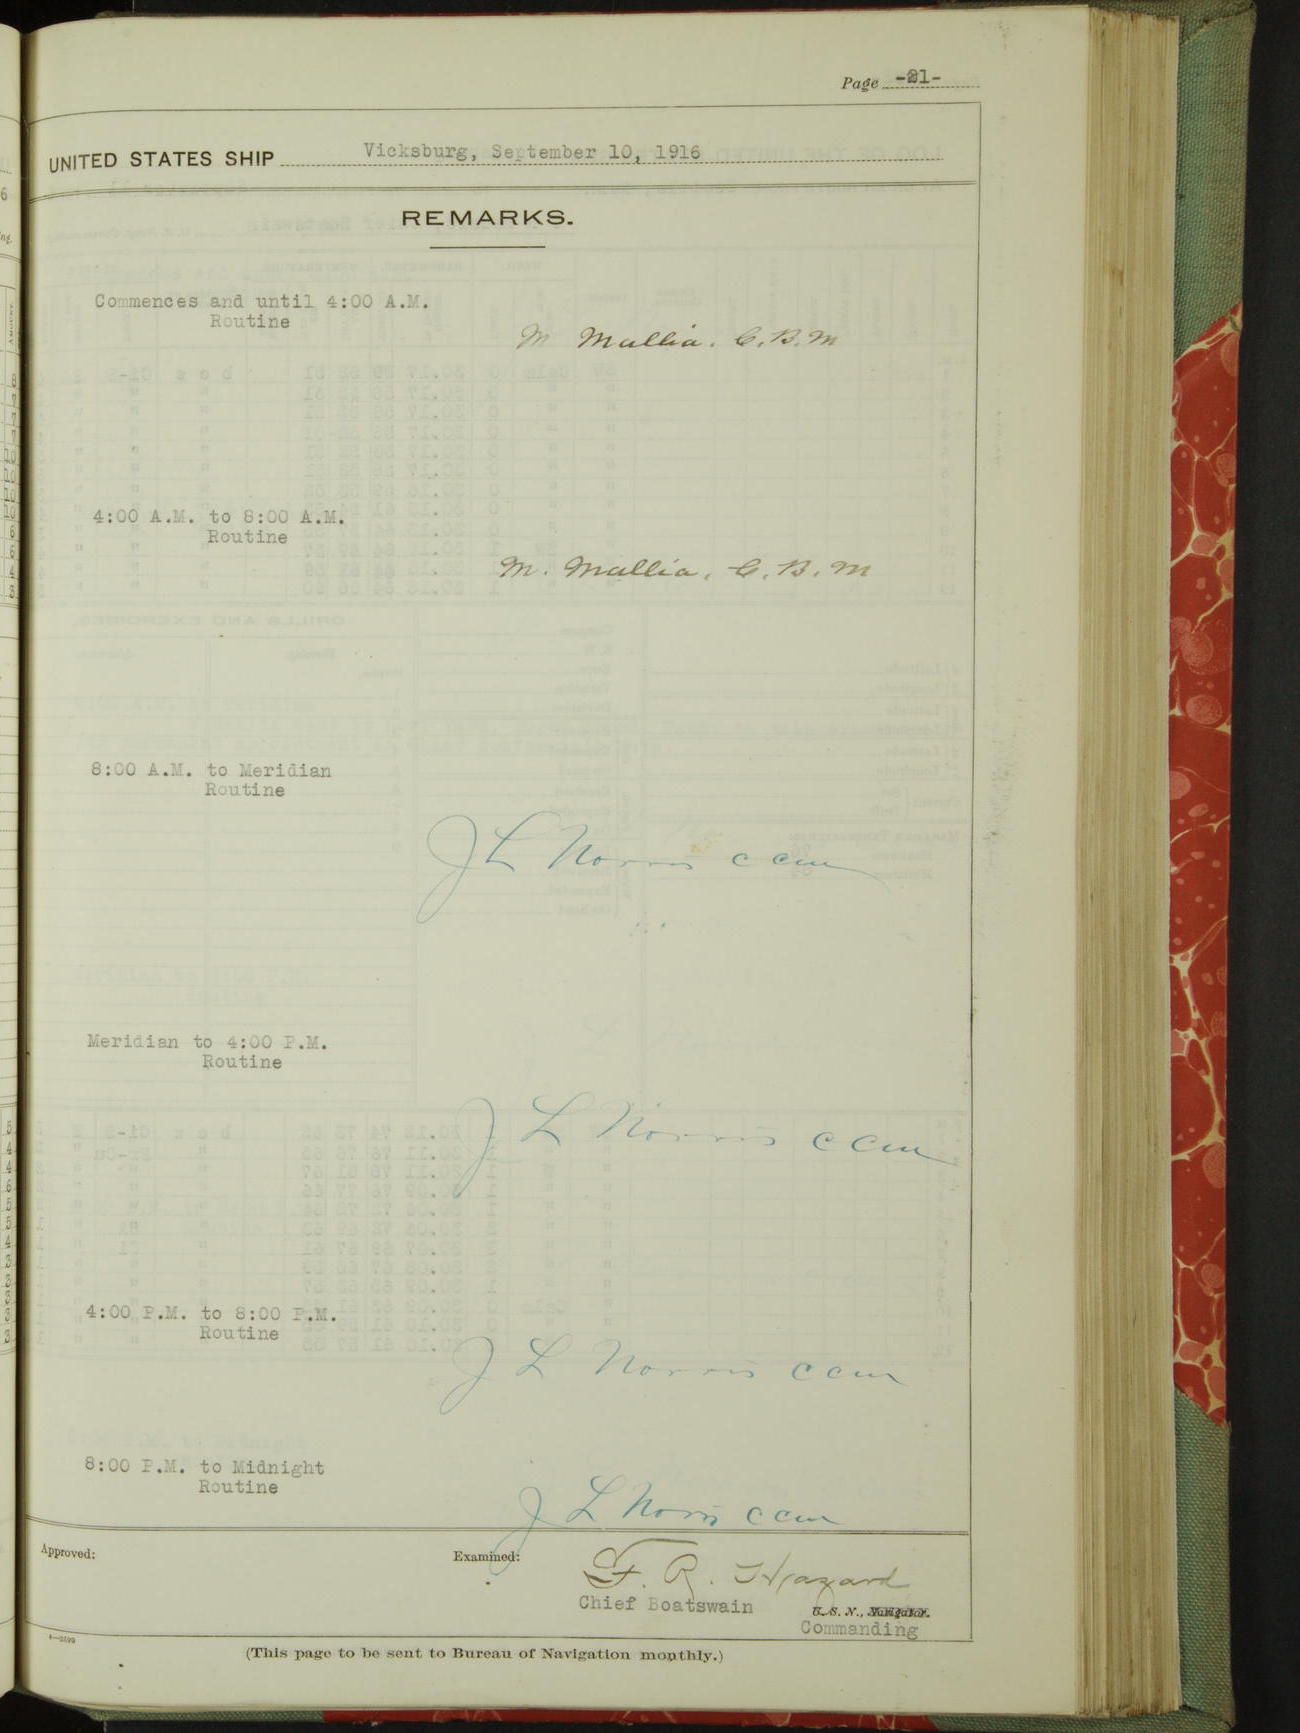 Page -21-
UNITED STATES SHIP Vicksburg, September 10, 1916
REMARKS.
Commences and until 4:00 A.M.
Routine
M Mallia. C.B.M
4:00 A.M. to 8:00 A.M.
Routine
M. Mallia. C.B.M
8:00 A.M. to Meridian
Routine
J L Norris c cm
Meridian to 4:00 P.M.
Routine
J L Norris c cm
4:00 P.M. to 8:00 P.M.
Routine
J L Norris c cm
8:00 P.M. to Midnight
Routine
J L Norris c cm
Approved:
Examined:
F. R. Hazard
Chief Boatswain U. S. N., Navigator.
Commanding
(This page to be sent to Bureau of Navigation monthly.)